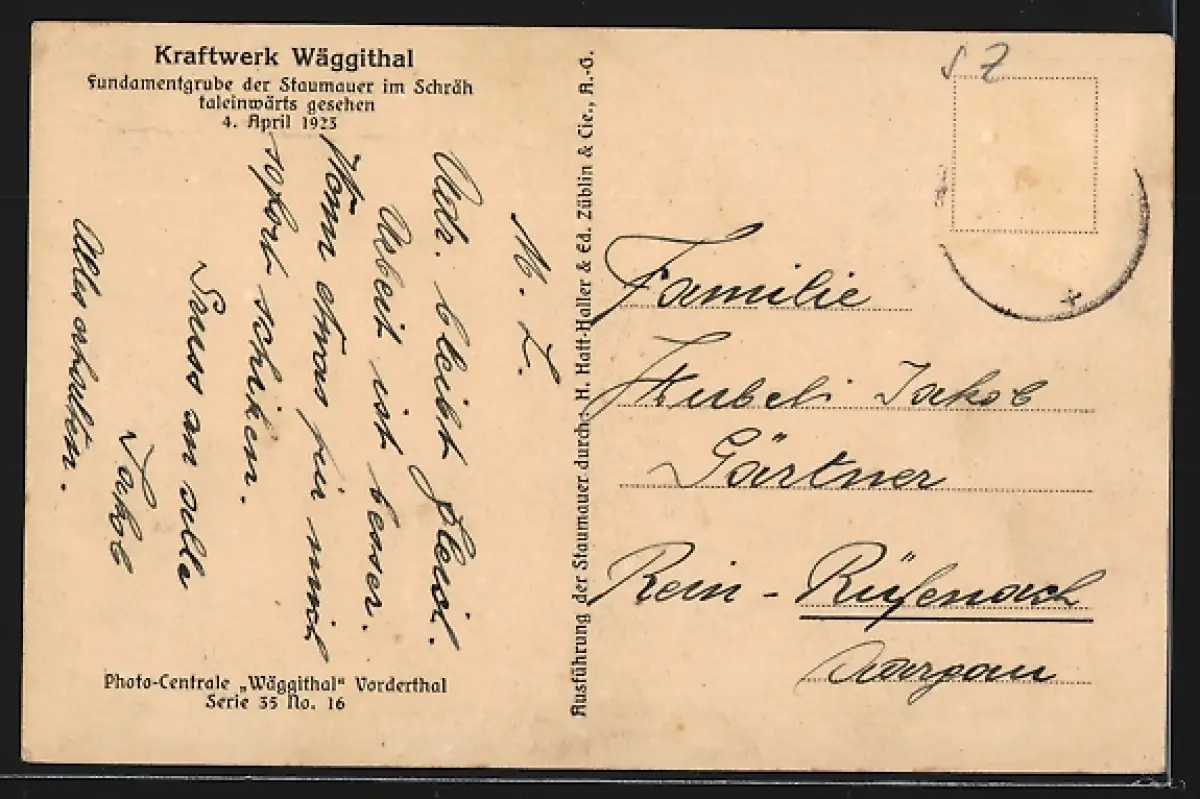 Kraftwerk Wäggithal
Fundamentgrube der Staumauer im Schräh
taleinwärts gesehen
4. April 1923
M. L.
Adr. bleibt gleich.
Arbeit ist besser.
Wenn etwas für mich
sofort schiken.
Gruss an alle
Jakob
Alles erhalten.
Photo-Centrale „Wäggithal" Vorderthal
Serie 35 No. 16
Ausführung der Staumauer durch: H. Hatt-Haller & Ed. Züblin & Cie., A.-G.
S Z
Familie
Hubeli Jakob
Gärtner
Rein - Rüfenach
Aargau